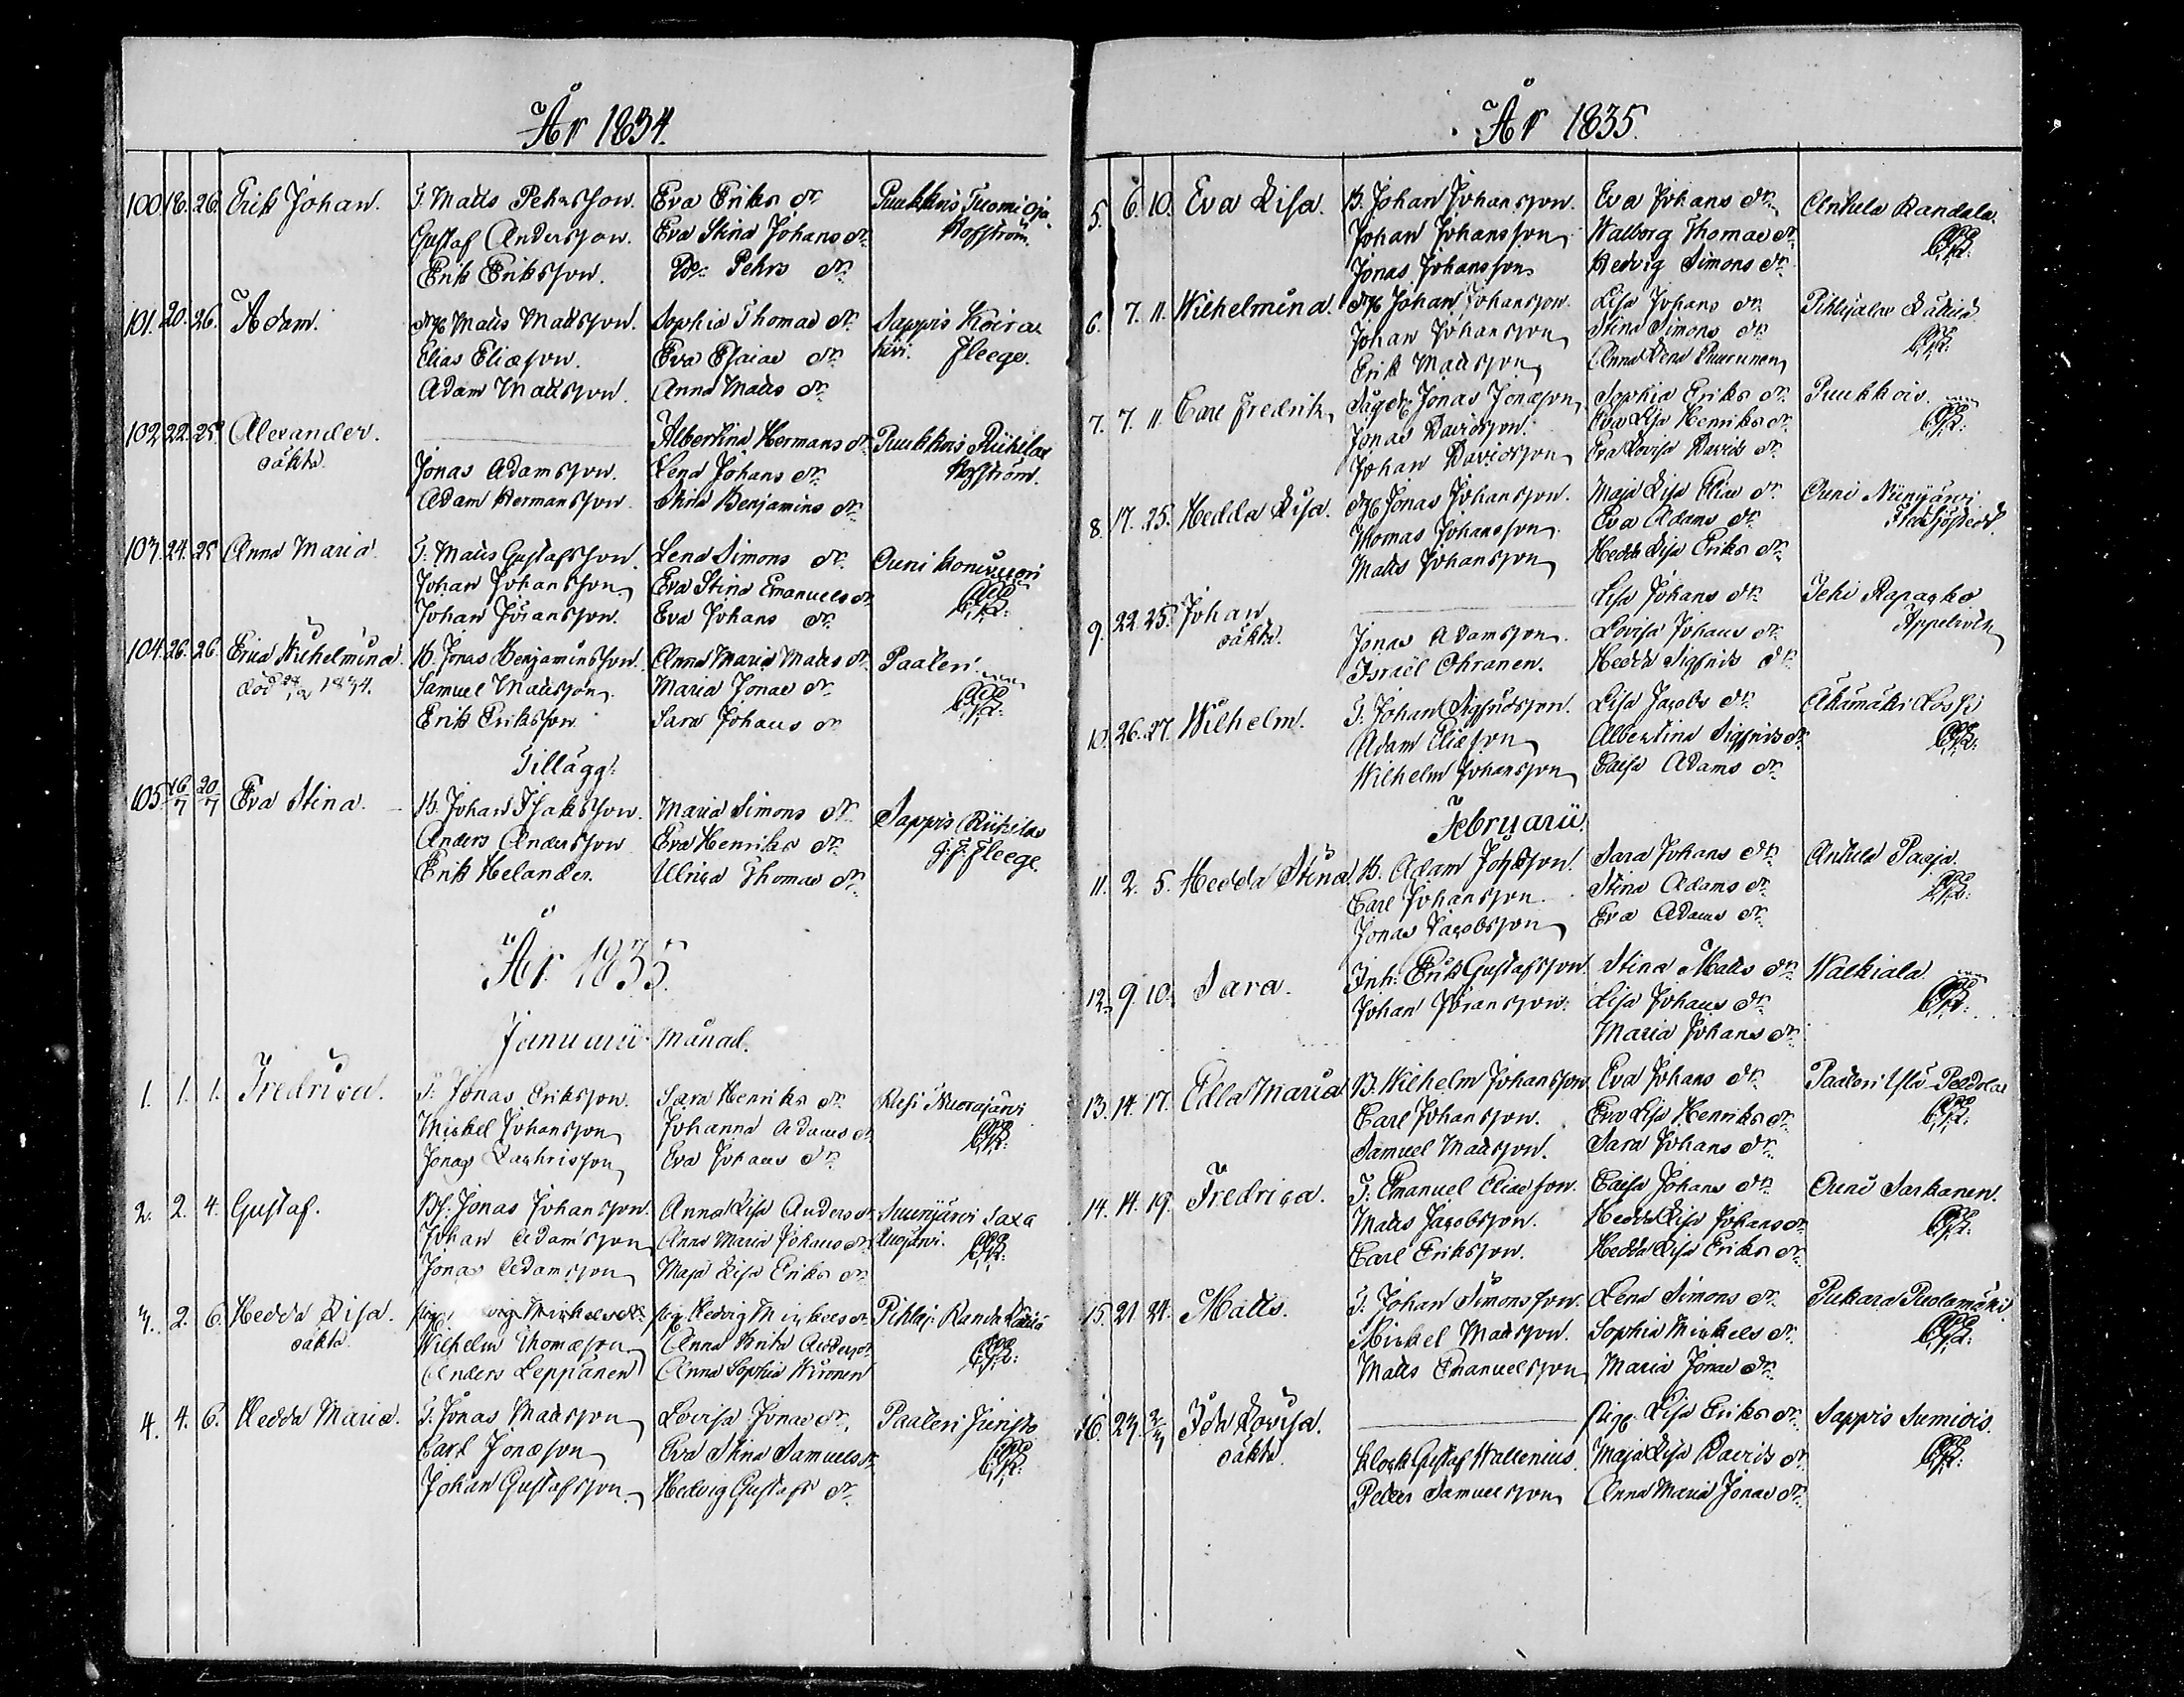 År 1834.
100. 18. 26. Erik Johan. T. Matts Pehrsson. Eva Eriks dr. Puukkois Tuomioja
Gustaf Andersson. Eva Stina Johans dr. Hofström.
Erik Eriksson. Do. Pehrs dr.
101. 20. 26. Adam. Matts Mattsson. Sophia Thomas dr. Sappis Koira
Elias Eliæson. Eva Esaias dr. kivi. Fleege.
Adam Mattsson. Anna Matts dr.
102. 22. 25. Alexander. Albertina Hermans dr. Puukkois
oäkta. Jonas Adamsson. Lena Johans dr. Hofström.
Adam Hermansson. Stina Benjamins dr.
103. 24. 25. Anna Maria. T. Matts Gustafsson. Lena Simons dr. Auni
Johan Johansson. Eva Stina Emanuels dr.
Johan Göransson. Eva Johans dr.
104. 26. 26. Erica Wilhelmina. B. Jonas Benjaminsson. Anna Maria Matts dr. Paateri
död 1834. Samuel Mattsson. Maria Jonas dr.
Erik Eriksson. Sara Johans dr.
Tillägg:
105. 16/7 20/7 Eva Stina. B. Johan Isaksson. Maria Simons dr. Sappis
Anders Andersson Eva Henriks dr. Fleege.
Erik Helander. Ulrica Thomas dr.
År 1835.
Januarii Månad.
1. 1. 1. Fredrica. T. Jonas Eriksson. Sara Henriks dr.
Mickel Johansson Johanna Adams dr.
Jonas Eva Johans dr.
2. 2. 4. Gustaf. Jonas Johansson. Anna Lisa Anders dr.
Johan Adamsson Anna Maria Johans dr.
Jonas Adamsson Maja Lisa Eriks dr.
3. 2. 6. Hedda Lisa. Mickels dr. Pig. Hedvig Mickels dr.
oäkta. Wilhelm Thomæson Anna Brita Anders dr.
Anders Leppänen Anna Sophia
4. 4. 6. Hedda Maria. T. Jonas Mattsson Lovisa Jonas dr. Paateri
Carl Jonæson Eva Stina Samuels dr.
Johan Gustafsson Hedvig Gustafs dr.
År 1835.
5. 6. 10. Eva Lisa. B. Johan Johansson. Eva Johans dr. Anttila
Johan Johansson Walborg Thomas dr.
Jonas Johansson Hedvig Simons dr.
6. 7. 11. Wilhelmina. Johan Johansson. Lisa Johans dr.
Johan Johansson Stina Simons dr.
Erik Mattsson Anna Lena Puurunen
7. 7. 11. Carl Fredrik Jonas Jonæson Sophia Eriks dr. Puukkois.
Jonas Davidsson. Eva Lisa Henriks dr.
Johan Davidsson Eva Lovisa Davids dr.
8. 17. 25. Hedda Lisa. Jonas Johansson. Maja Lisa Elias dr. Auni Niinijärvi
Thomas Johansson Eva Adams dr.
Matts Johansson Hedda Lisa Eriks dr.
9. 22. 25. Johan Lisa Johans dr.
oäkta. Jonas Adamsson. Lovisa Johans dr.
Israël Ohranen. Hedda Sigfrids dr.
10. 26. 27. Wilhelm. T. Johan Sigfridsson. Lisa Jacobs dr.
Adam Eliæson Albertina Sigfrids dr.
Wilhelm Johansson Caisa Adams dr.
Februarii.
11. 2. 5. Hedda Stina. B. Adam Sara Johans dr. Anttila
Carl Johansson Stina Adams dr.
Jonas Jacobsson Eva Adams dr.
12. 9. 10. Sara. Inh. Erik Gustafsson. Stina Matts dr. Walkiala
Johan Göransson. Lisa Johans dr.
Maria Johans dr.
13. 14. 17. Edla Maria B. Wilhelm Johansson. Eva Johans dr. Paateri
Carl Johansson. Eva Lisa Henriks dr.
Samuel Mattsson. Sara Johans dr.
14. 14. 19. Fredrica. T. Emanuel Eliæson. Caisa Johans dr. Auni Sarkanen.
Matts Jacobsson. Hedda Lisa Johans dr.
Carl Eriksson. Hedda Lisa Eriks dr.
15. 21. 24. Matts. T. Johan Simonsson. Lena Simons dr. Pukara Puolamäki
Mickel Mattsson. Sophia Mickels dr.
Matts Emanuelsson Maria Jonas dr.
16. 23. Ida Lovisa. Pig. Lisa Eriks dr. Sappis
oäkta. Klock. Gustaf Wallenius. Maja Lisa Davids dr.
Petter Samuelsson Anna Maria Jonas dr.